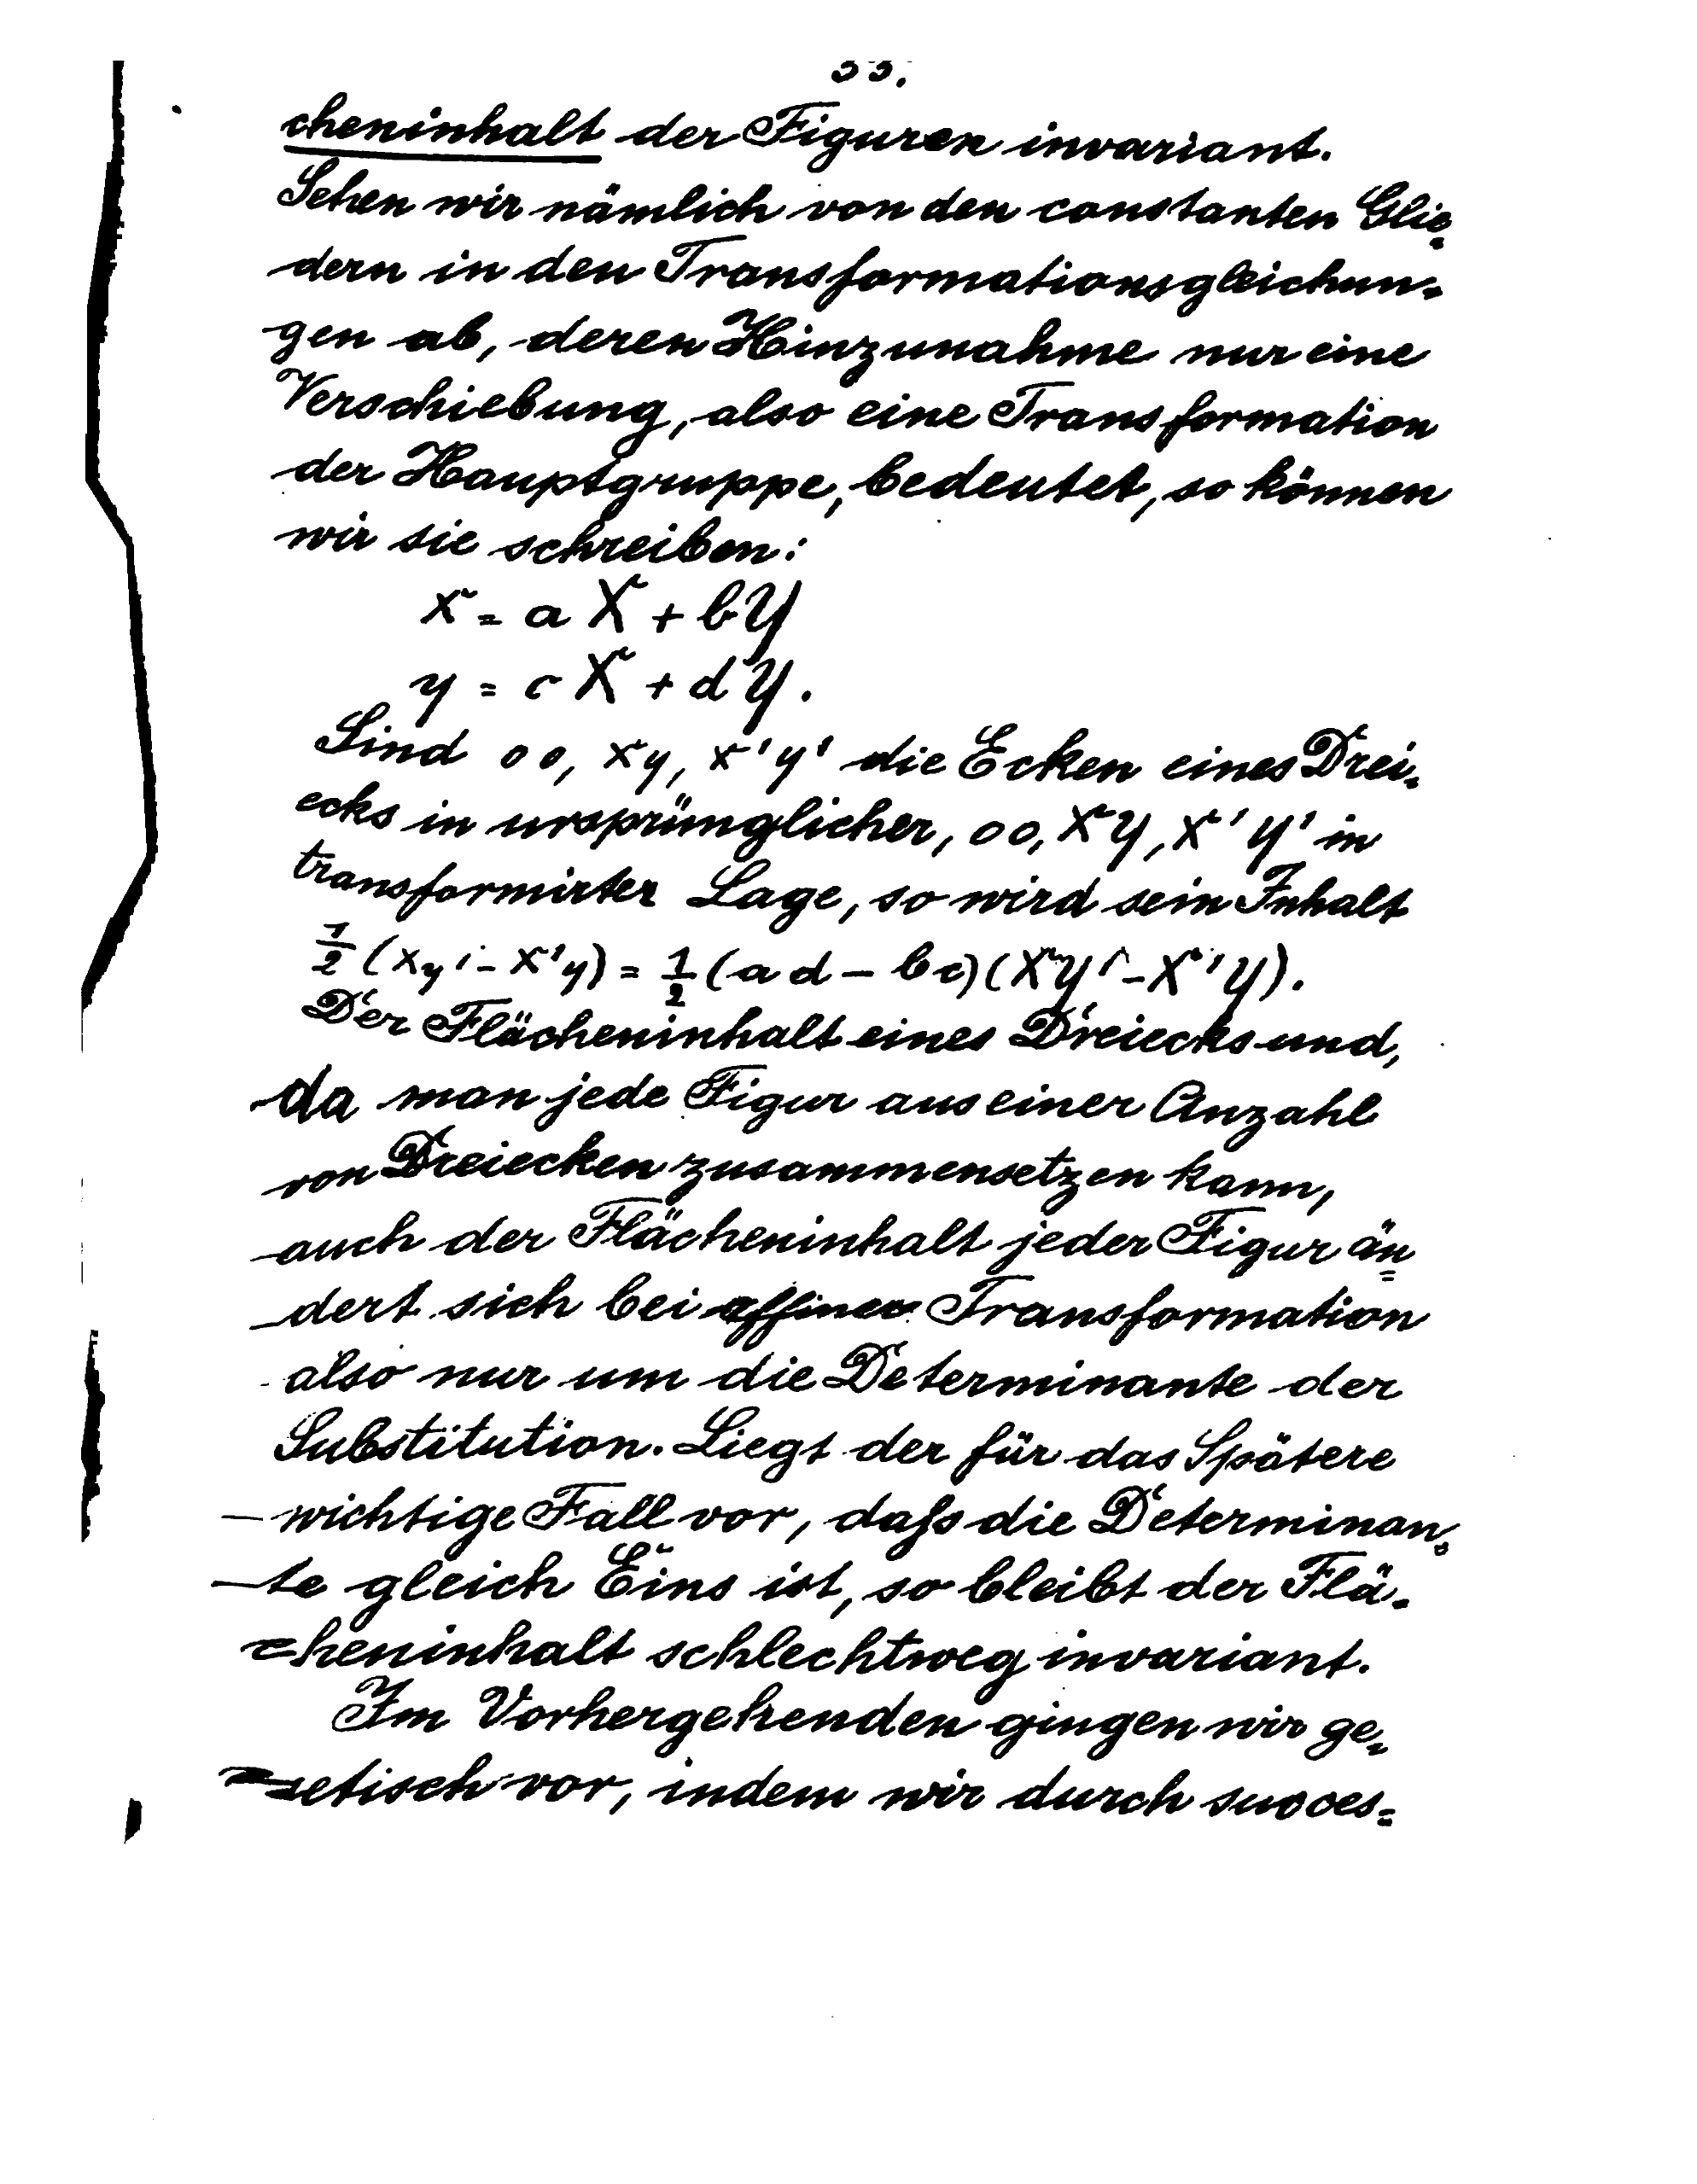 33.
cheninhalt der Figuren invariant.
Sehen wir nämlich von den constanten Glie=
dern in den Transformationsgleichun=
gen ab, deren Hinzunahme nur eine
Verschiebung, also eine Transformation
der Hauptgruppe, bedeutet, so können
wir sie schreiben:
x = a X + b Y
y = c X + d Y.
Sind 0 0, x y, x' y' die Ecken eines Drei=
ecks in ursprünglicher, 0 0, X Y, X' Y' in
transformirter Lage, so wird sein Inhalt
1/2 (x y' - x' y) = 1/2 (a d - b c) (X Y' - X' Y).
Der Flächeninhalt eines Dreiecks und,
da man jede Figur aus einer Anzahl
von Dreiecken zusammensetzen kann,
auch der Flächeninhalt jeder Figur än=
dert sich bei affiner Transformation
also nur um die Determinante der
Substitution. Liegt der für das Spätere
wichtige Fall vor, daſs die Determinan=
te gleich Eins ist, so bleibt der Flä=
cheninhalt schlechtweg invariant.
Im Vorhergehenden gingen wir ge=
netisch vor, indem wir durch succes=